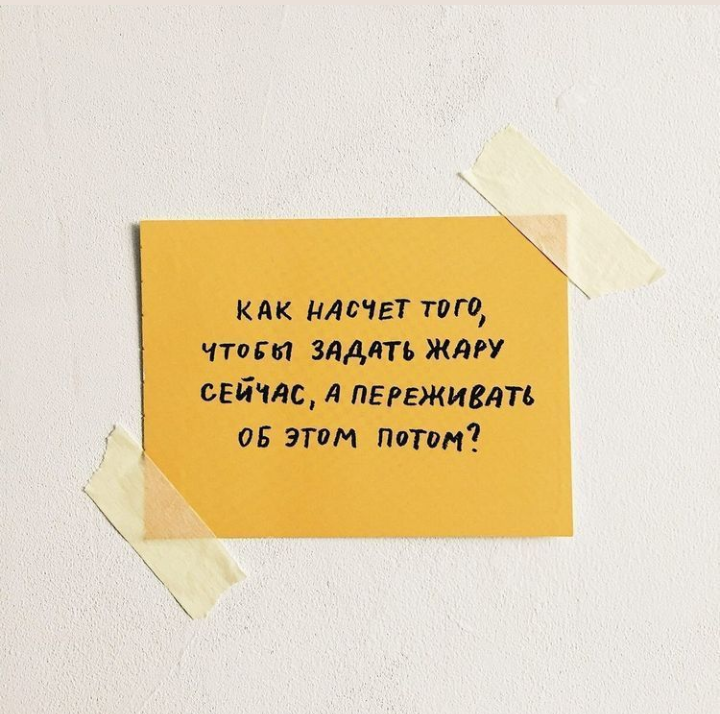 КАК НАСЧЕТ ТОГО,
ЧТОБЫ ЗАДАТЬ ЖАРУ
СЕЙЧАС, А ПЕРЕЖИВАТЬ
ОБ ЭТОМ ПОТОМ?